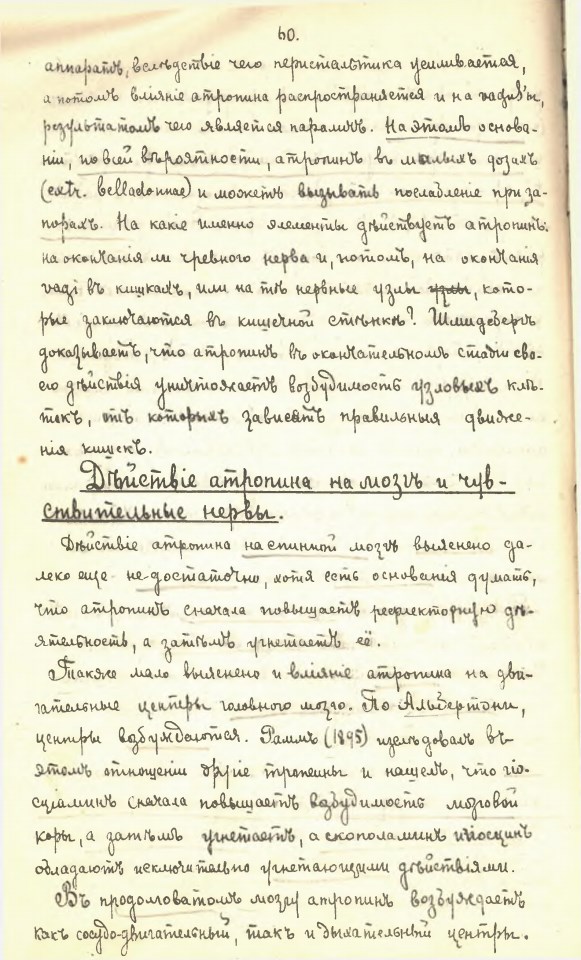 60.
аппаратъ, вслѣдствіе чего перистальтика усиливается,
а потомъ вліяніе атропина распространяется и на vagus'ы,
результатомъ чего является параличъ. На этомъ основа-
ніи, по всей вѣроятности, атропинъ въ малыхъ дозахъ
(extr. belladonnae) и можетъ вызывать послабленіе при за-
порахъ. На какіе именно элементы дѣйствуетъ атропинъ:
на окончанія ли чревного нерва и, потомъ, на окончанія
vagi въ кишкахъ, или на тѣ нервные узлы узлы, кото-
рые заключаются въ кишечной стѣнкѣ? Шмидебергъ
доказываетъ, что атропинъ въ окончательномъ стадіи сво-
его дѣйствія уничтожаетъ возбудимость узловыхъ клѣ-
токъ, отъ которыхъ зависятъ правильныя движе-
нія кишекъ.
Дѣйствіе атропина на мозгъ и чув-
ствительные нервы.
Дѣйствіе атропина на спинной мозгъ выяснено да-
леко еще недостаточно, хотя есть основанія думать,
что атропинъ сначала повышаетъ рефлекторную дѣ-
ятельность, а затѣмъ угнетаетъ её.
Также мало выяснено и вліяніе атропина на дви-
гательные центры головного мозга. По Альбертони,
центры возбуждаются. Раммъ (1895) изслѣдовалъ въ
этомъ отношеніи другіе тропеины и нашелъ, что гіо-
сціаминъ сначала повышаетъ возбудимость мозговой
коры, а затѣмъ угнетаетъ, а скополаминъ и гіосцинъ
обладаютъ исключительно угнетающими дѣйствіями.
Въ продолговатомъ мозгу атропинъ возбуждаетъ
какъ сосудо-двигательный, такъ и дыхательный центры.